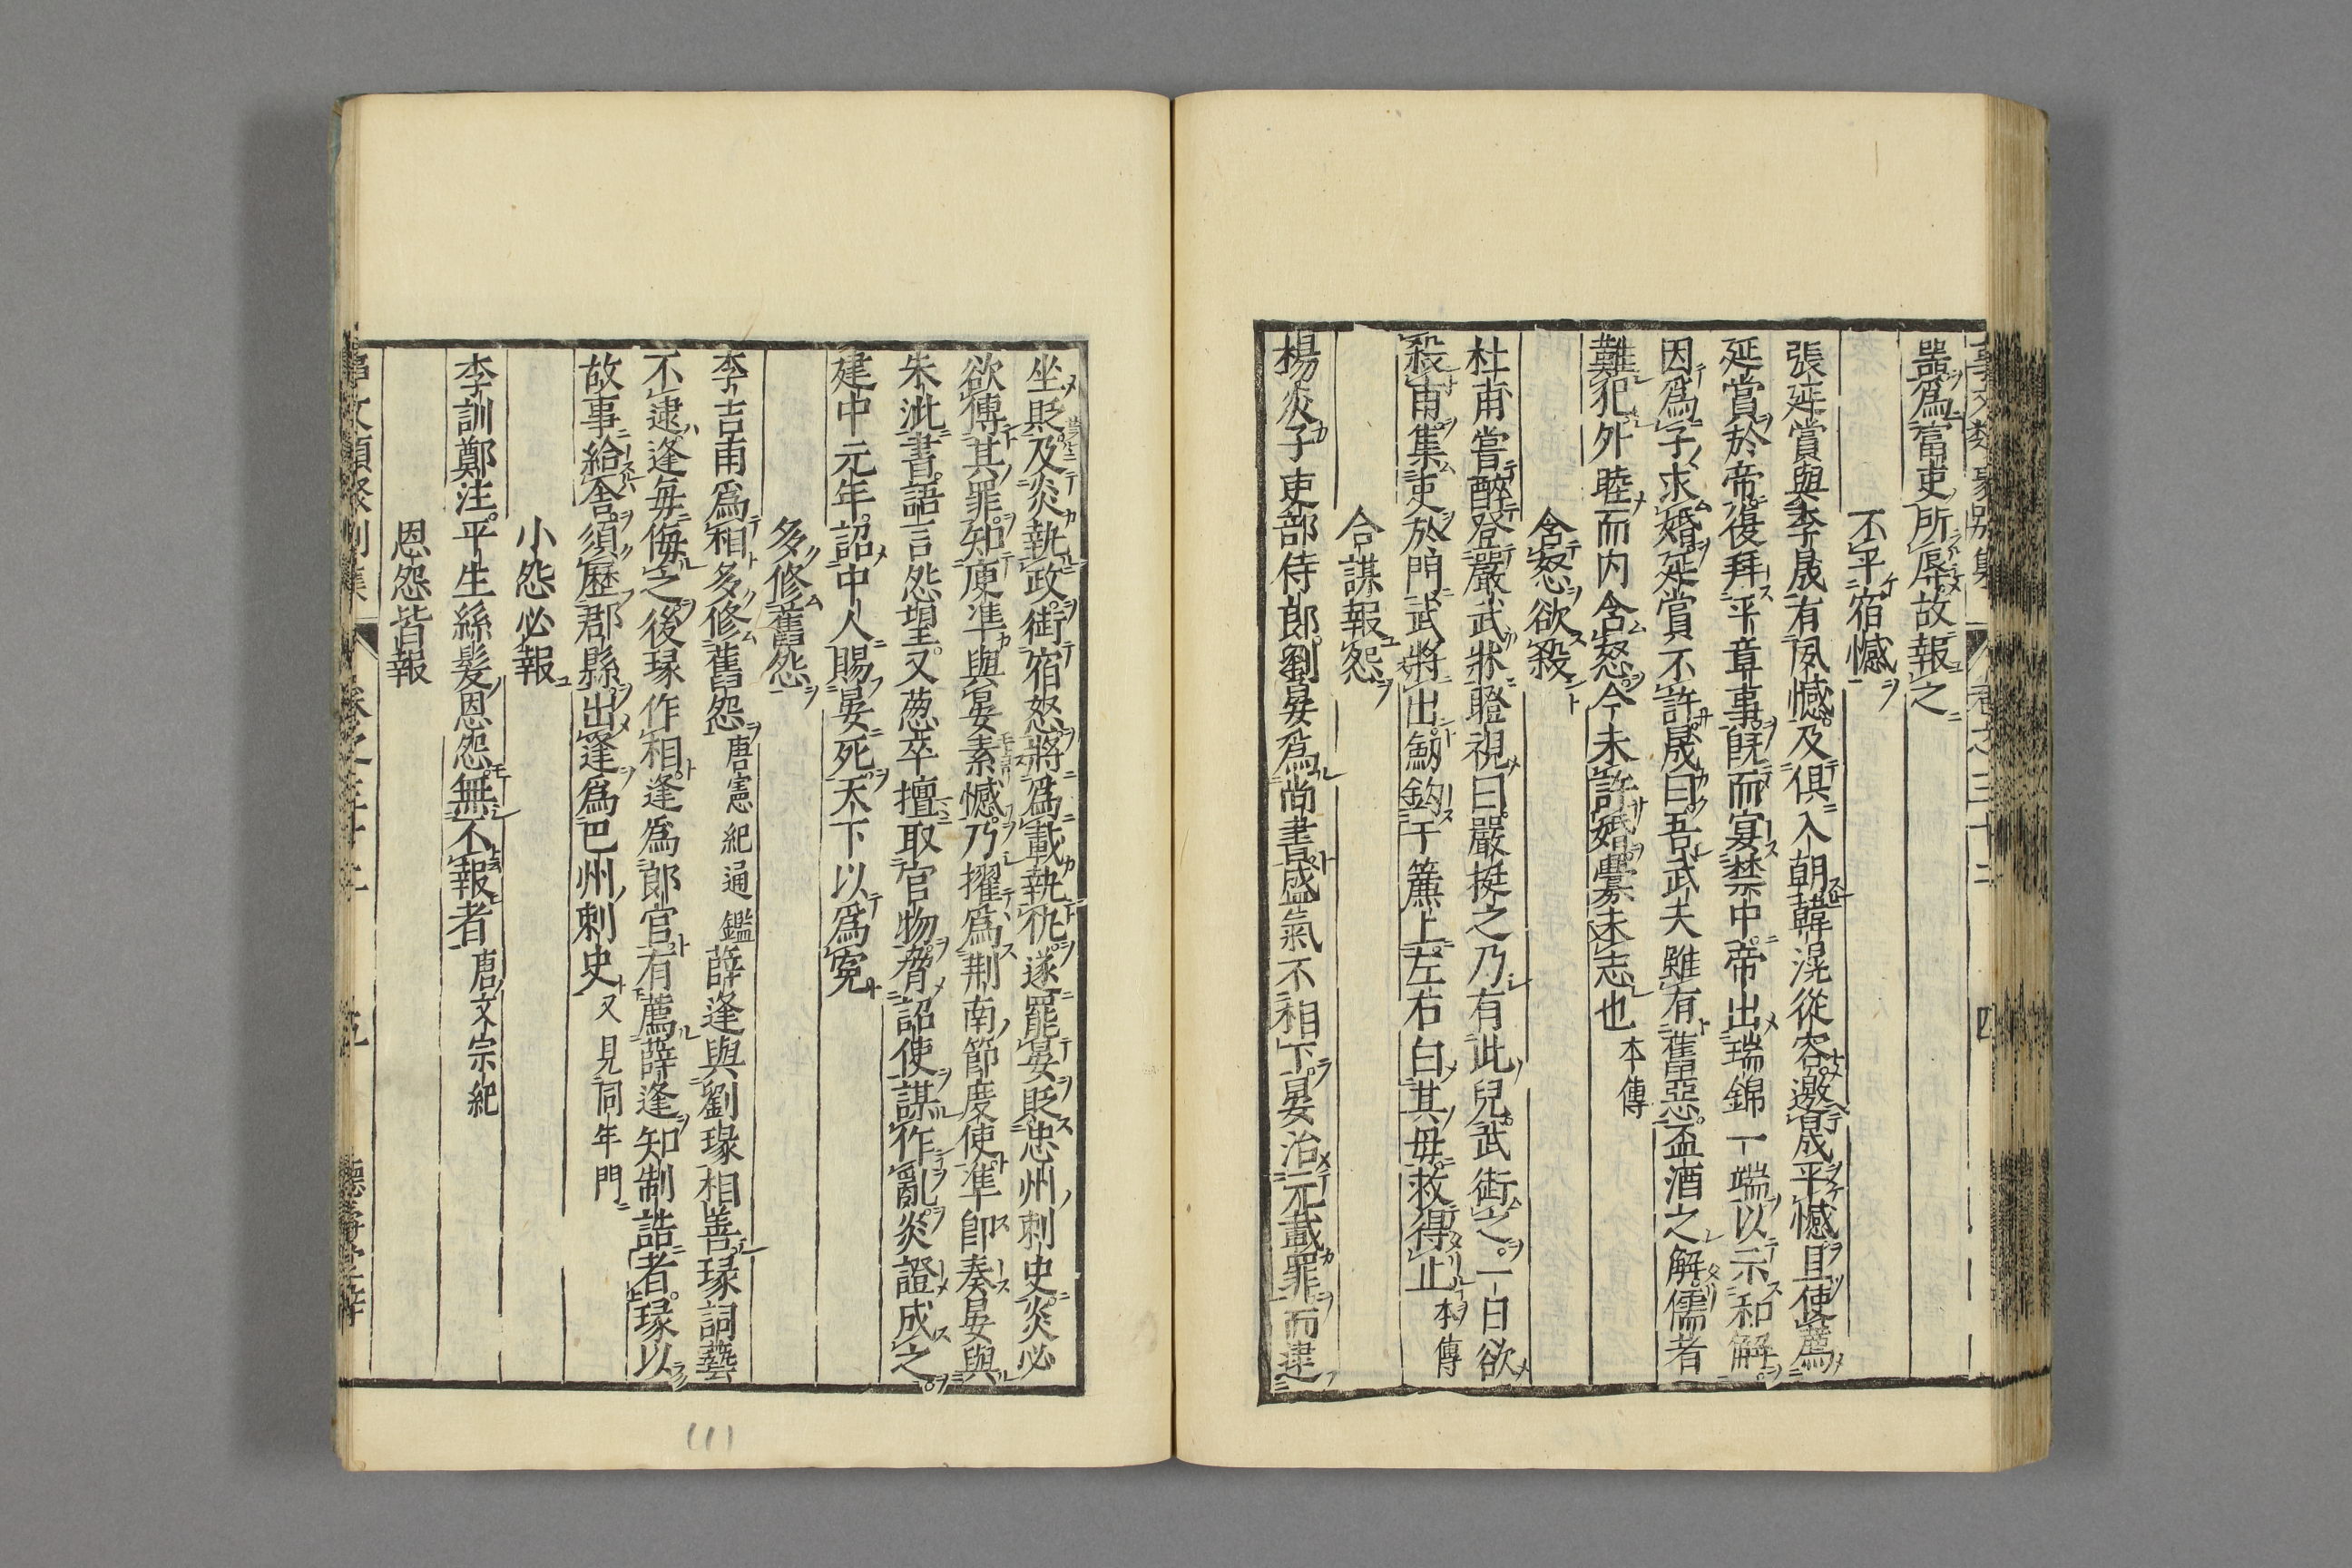 囂爲富吏所辱故報之
不平宿憾
張延賞與李晟有夙憾及俱入朝韓滉從容邀晟平憾且使薦
延賞於帝復拜平章事既而宴禁中帝出瑞錦一端以示和解
因爲子求婚延賞不許晟曰吾武夫雖有舊惡盃酒之解儒者
難犯外睦而内含怒今未許婚釁未志也本傳
含怒欲殺
杜甫嘗醉登嚴武牀瞪視曰嚴挺之乃有此兒武銜之一日欲
殺甫集吏於門武將出劒鈎于簾上左右白其母救得止本傳
合謀報怨
楊炎子吏部侍郎劉晏爲尚書盛氣不相下晏治元載罪而逮
坐貶及炎執政銜宿怒將爲載執仇遂罷晏貶忠州刺史炎必
欲傅其罪知庾準與晏素憾乃擢爲荆南節度使準卽奏晏與
朱泚書語言怨望又蒐卒擅取官物脅詔使謀作亂炎證成之
建中元年詔中人賜晏死天下以爲寃
多修舊怨
李吉甫爲相多修舊怨唐憲紀通鑑薛逢與劉瑑相善瑑詞藝
不逮逢每侮之後瑑作相逢爲郎官有薦薛逢知制誥者瑑以
故事給舍須歷郡縣出逢爲巴州刺史又見同年門
小怨必報
李訓鄭注平生絲髮恩怨無不報者唐文宗紀
恩怨皆報